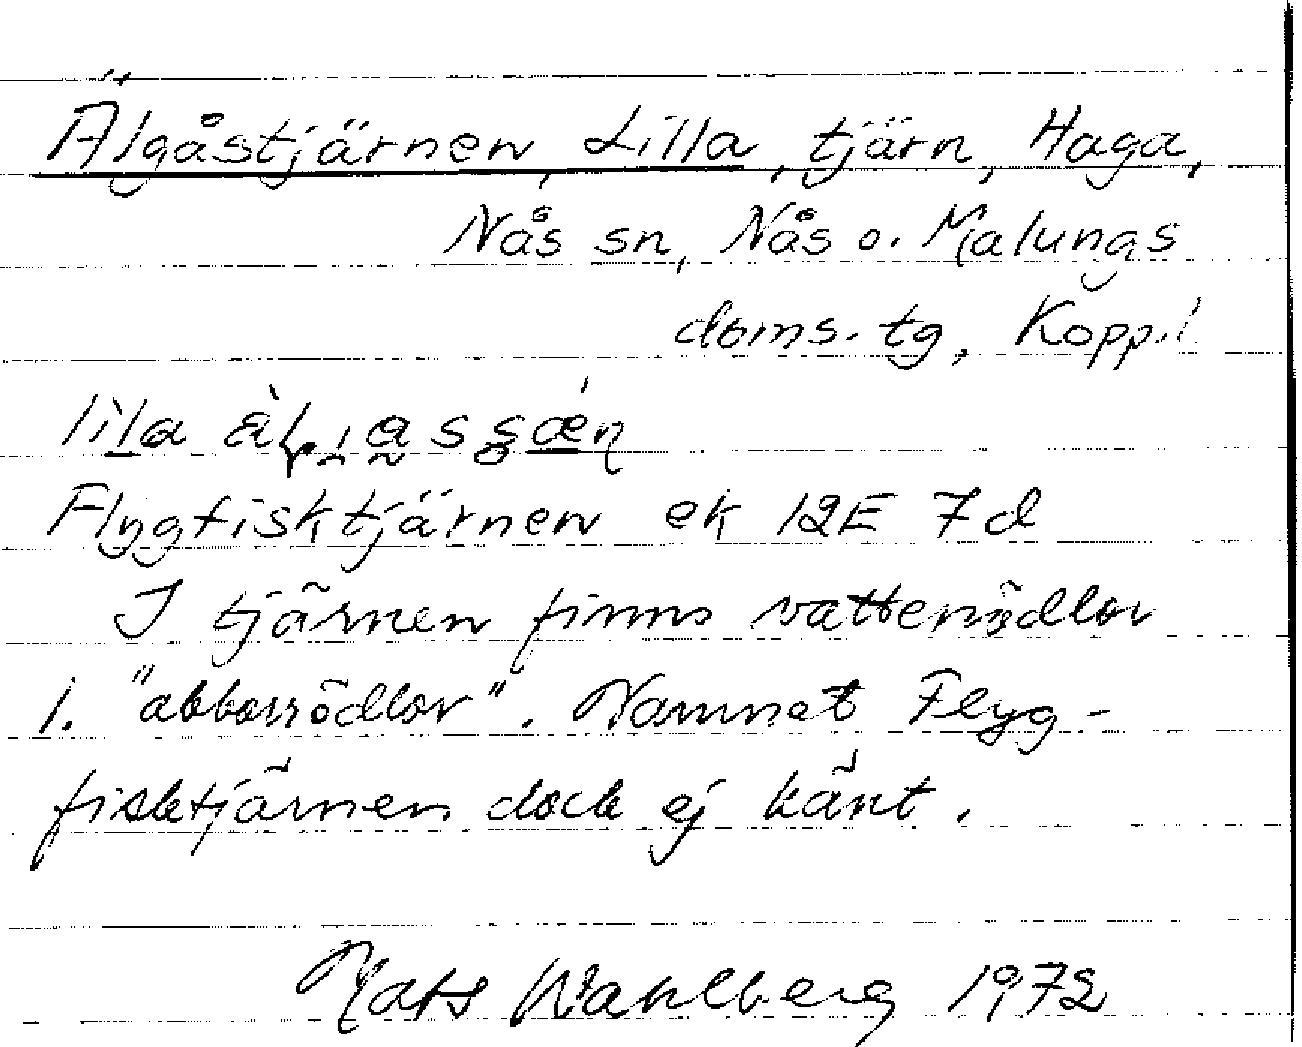 Älgåstjärnen, Lilla, tjärn, Haga,
Nås sn, Nås o. Malungs
doms. tg, Kopp.l
lìla
Flygfisktjärnen ek 12E 7d
I tjärnen finns vattenödlor
l. "abborrödlor". Namnet Flyg-
fisktjärnen dock ej känt.
Mats Wahlberg 1972